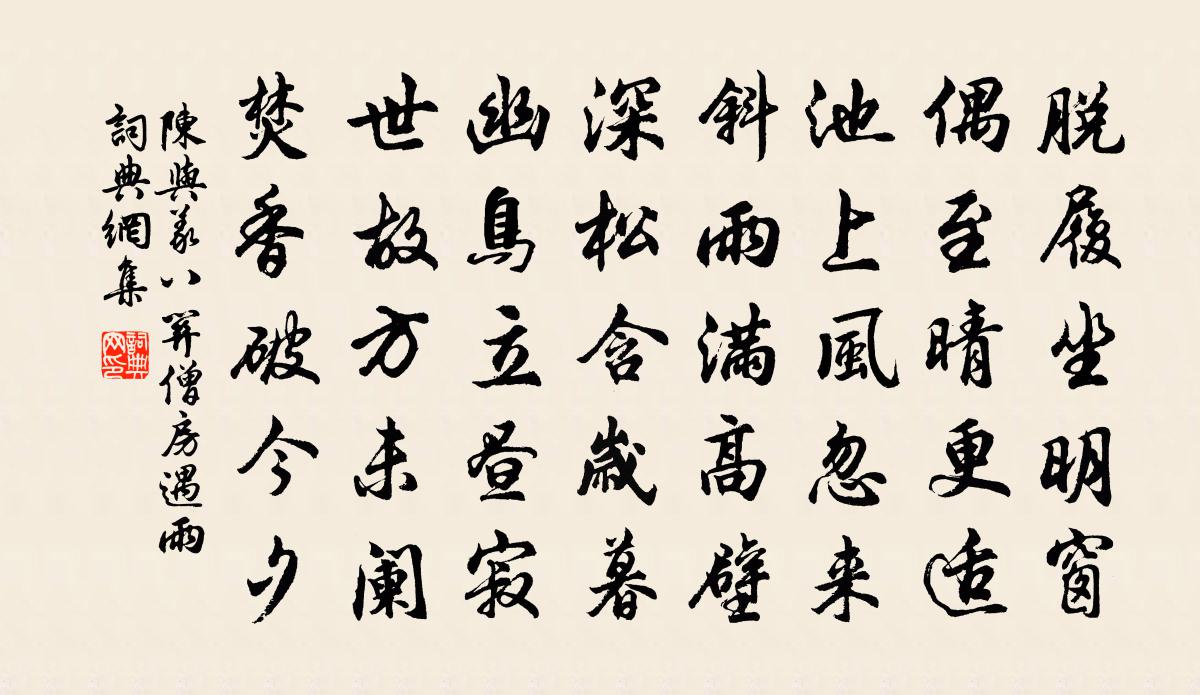 脱履坐明窗
偶至晴更适
池上風忽来
斜雨滿高壁
深松含歲暮
幽鳥立昼寂
世故方未闌
焚香破今夕
陳與義八關僧房遇雨
詞典網集
詞典网印